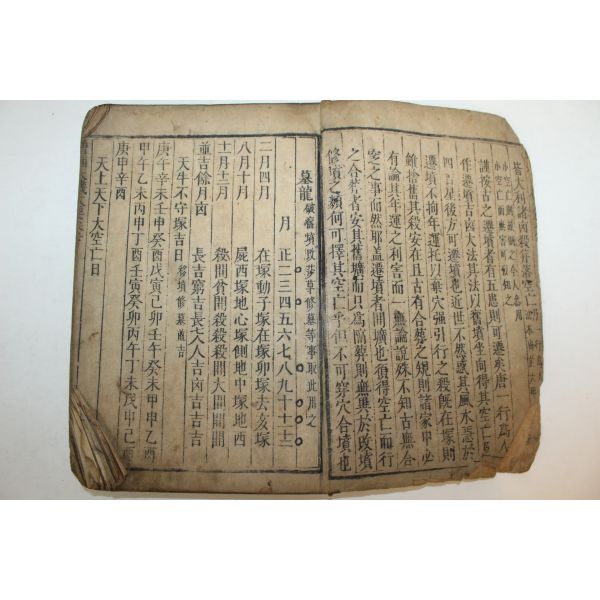 塟大利諸凶殺幷落空亡
謹按古之遷墳者有五患則可遷矣唐一行爲人
作遷墳吉凶大法其法以舊墳坐向得其空亡
四字星後方可遷墳也近世不然或其風水恐於
遷墳不拘年運托以舊穴强引行之殺旣在塚則
雖擒其殺安在且古有合塟之規則諸家中必
有論其年運之利害而一無論說殊不知古無合
窆之事而然耶盖遷墳者開壙也後得空亡而行
之合塟者安其舊壙而只爲臨殺則無異於改墳
修墳之類何可擇其空亡乎但不可穿穴合墳也
墓龍 破舊墳改莎草修墓等事取此用之
月 正二三四五六七八九十十一十二
二月四月 在塚動子塚在塚卯塚去亥塚
八月十月 屍西塚地心塚側地中塚地西
十一月十二月 殺間貧則殺殺殺間大間間間
並吉餘月凶 長吉窮吉長大人吉凶吉吉吉
天牛不守塚吉日 移墳修墓通吉
庚午辛未壬申癸酉戊寅己卯壬午癸未甲申乙酉
甲午乙未丙申丁酉壬寅癸卯丙午丁未戊申己酉
庚申辛酉
天上天下大空亡日